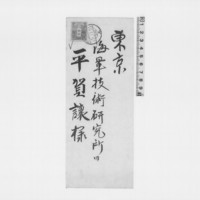 東京
海軍技術研究所
平賀譲様